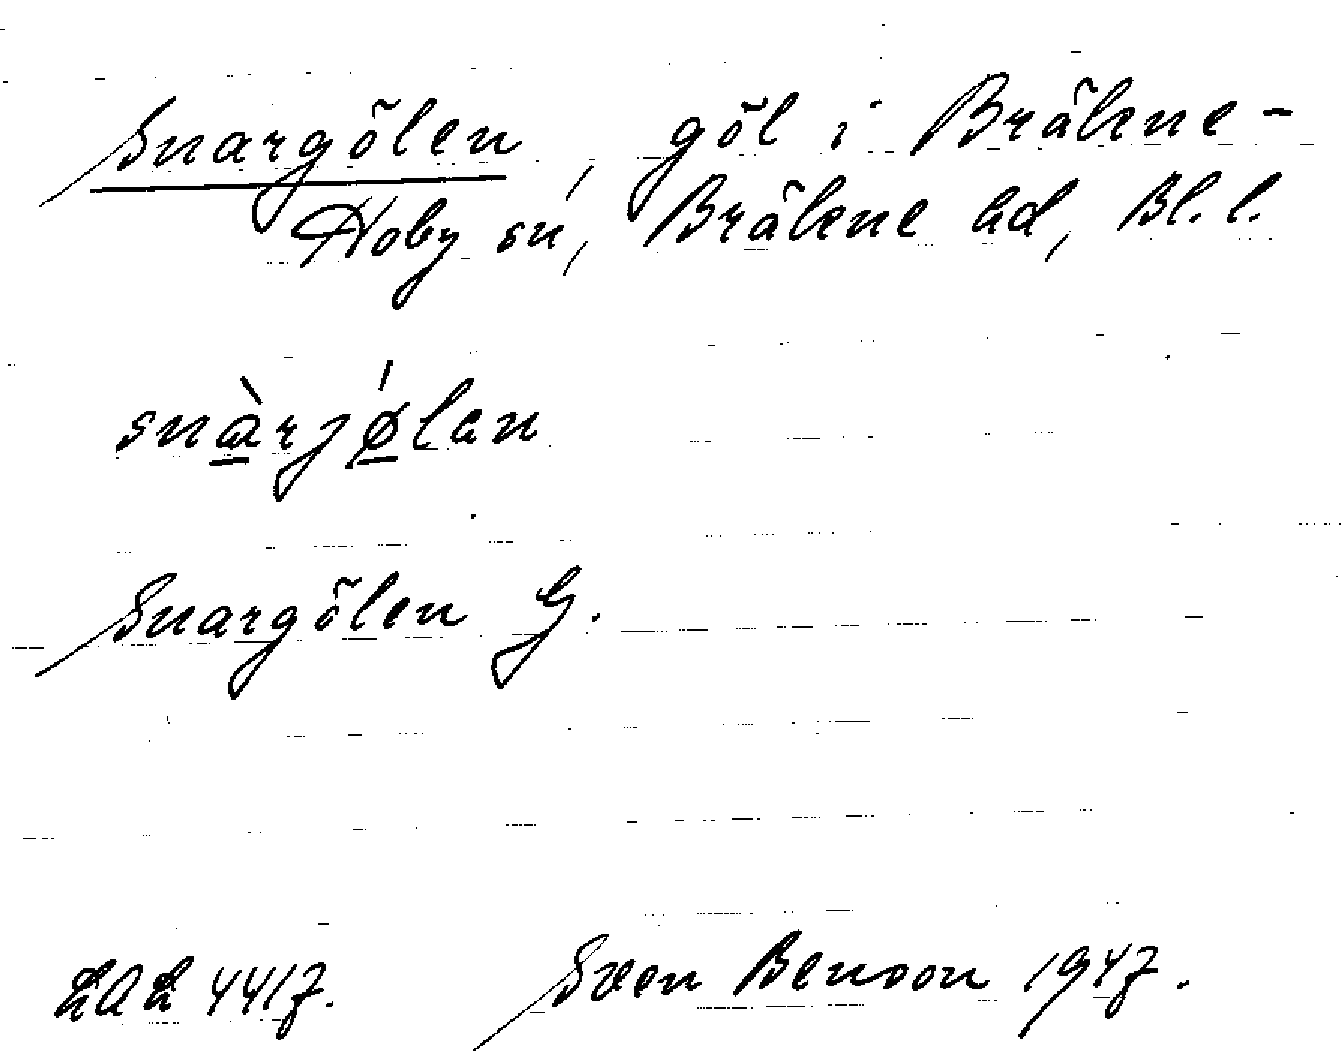 Snargölen, göl i Bräkne-
Hoby sn, Bräkne hd, Bl. l.
snàrjǿlan
Snargölen G.
LAL 4417. Sven Benson 1947.